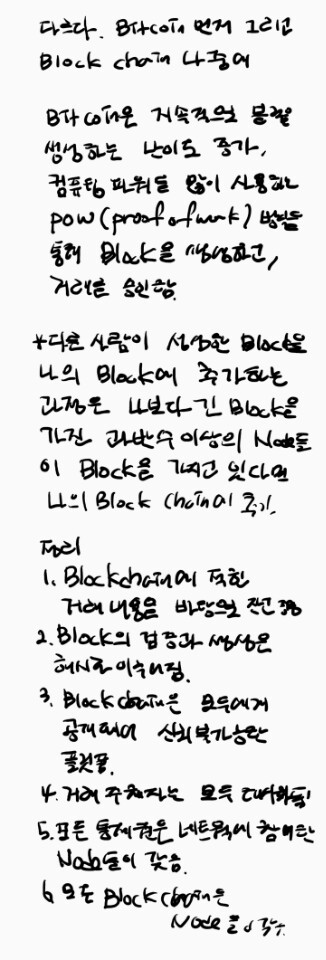 다르다. Bitcoin 먼저 그리고
Block chain 나중에
Bitcoin은 지속적으로 블럭
생성하는 난이도 증가.
컴퓨팅 파워를 많이 사용하는
pow(proof of work) 방법을
통해 Block을 생성하고,
거래를 승인함.
*다른 사람이 생성한 Block을
나의 Block에 추가하는
과정은 나보다 긴 Block을
가진 과반수 이상의 Node들
이 Block을 가지고 있다면
나의 Block chain에 추가.
정리
1. Blockchain에 적힌
거래내용을 바탕으로 잔고 증명
2. Block의 검증과 생성은
해시로 이루어짐.
3. Blockchain은 모두에게
공개되어 신뢰
플랫폼.
4. 거래 주체자는 모두
5. 모든 통제권은 네트워크에 참여한
Node들이 갖음.
6. 모든 Blockchain은
Node들이